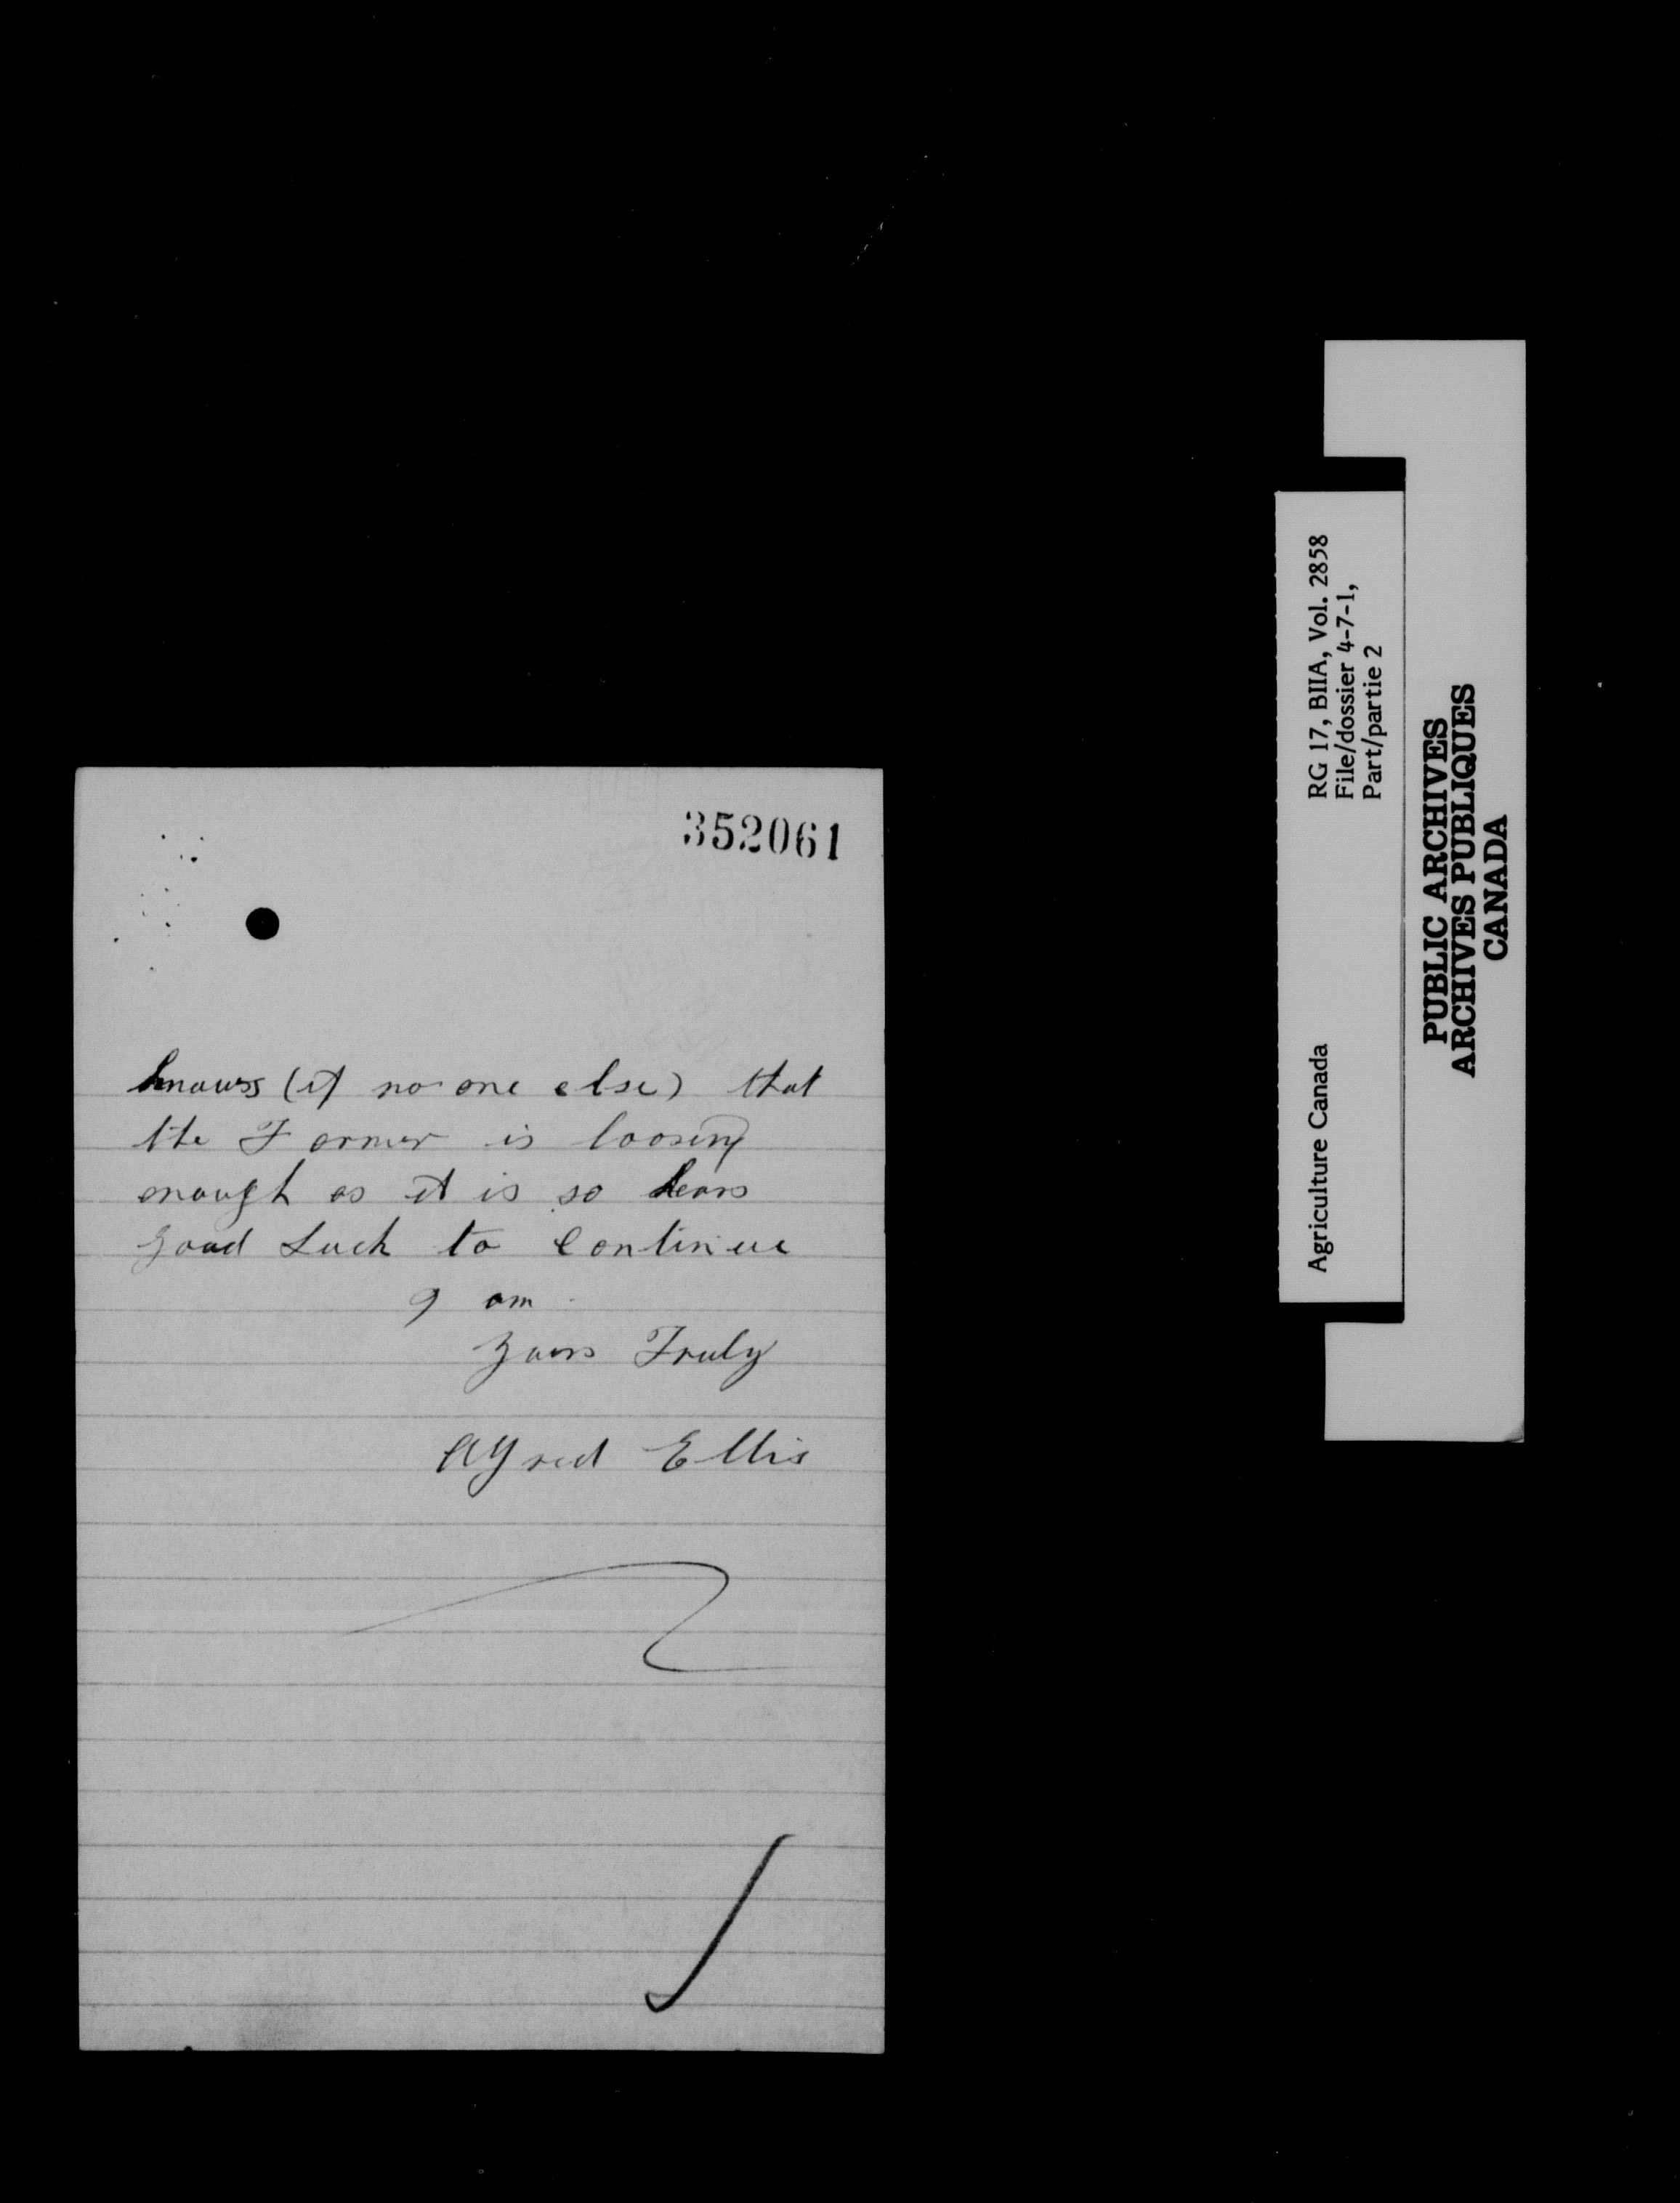 352061
knows (if no one else) that
the Farmer is loosing
enough as it is so hears
good Luck to Continue
I am
yours Truly
Alfred Ellis
Agriculture Canada
RG 17, BIIA, Vol. 2858
File/dossier 4-7-1,
Part/partie 2
PUBLIC ARCHIVES
ARCHIVES PUBLIQUES
CANADA